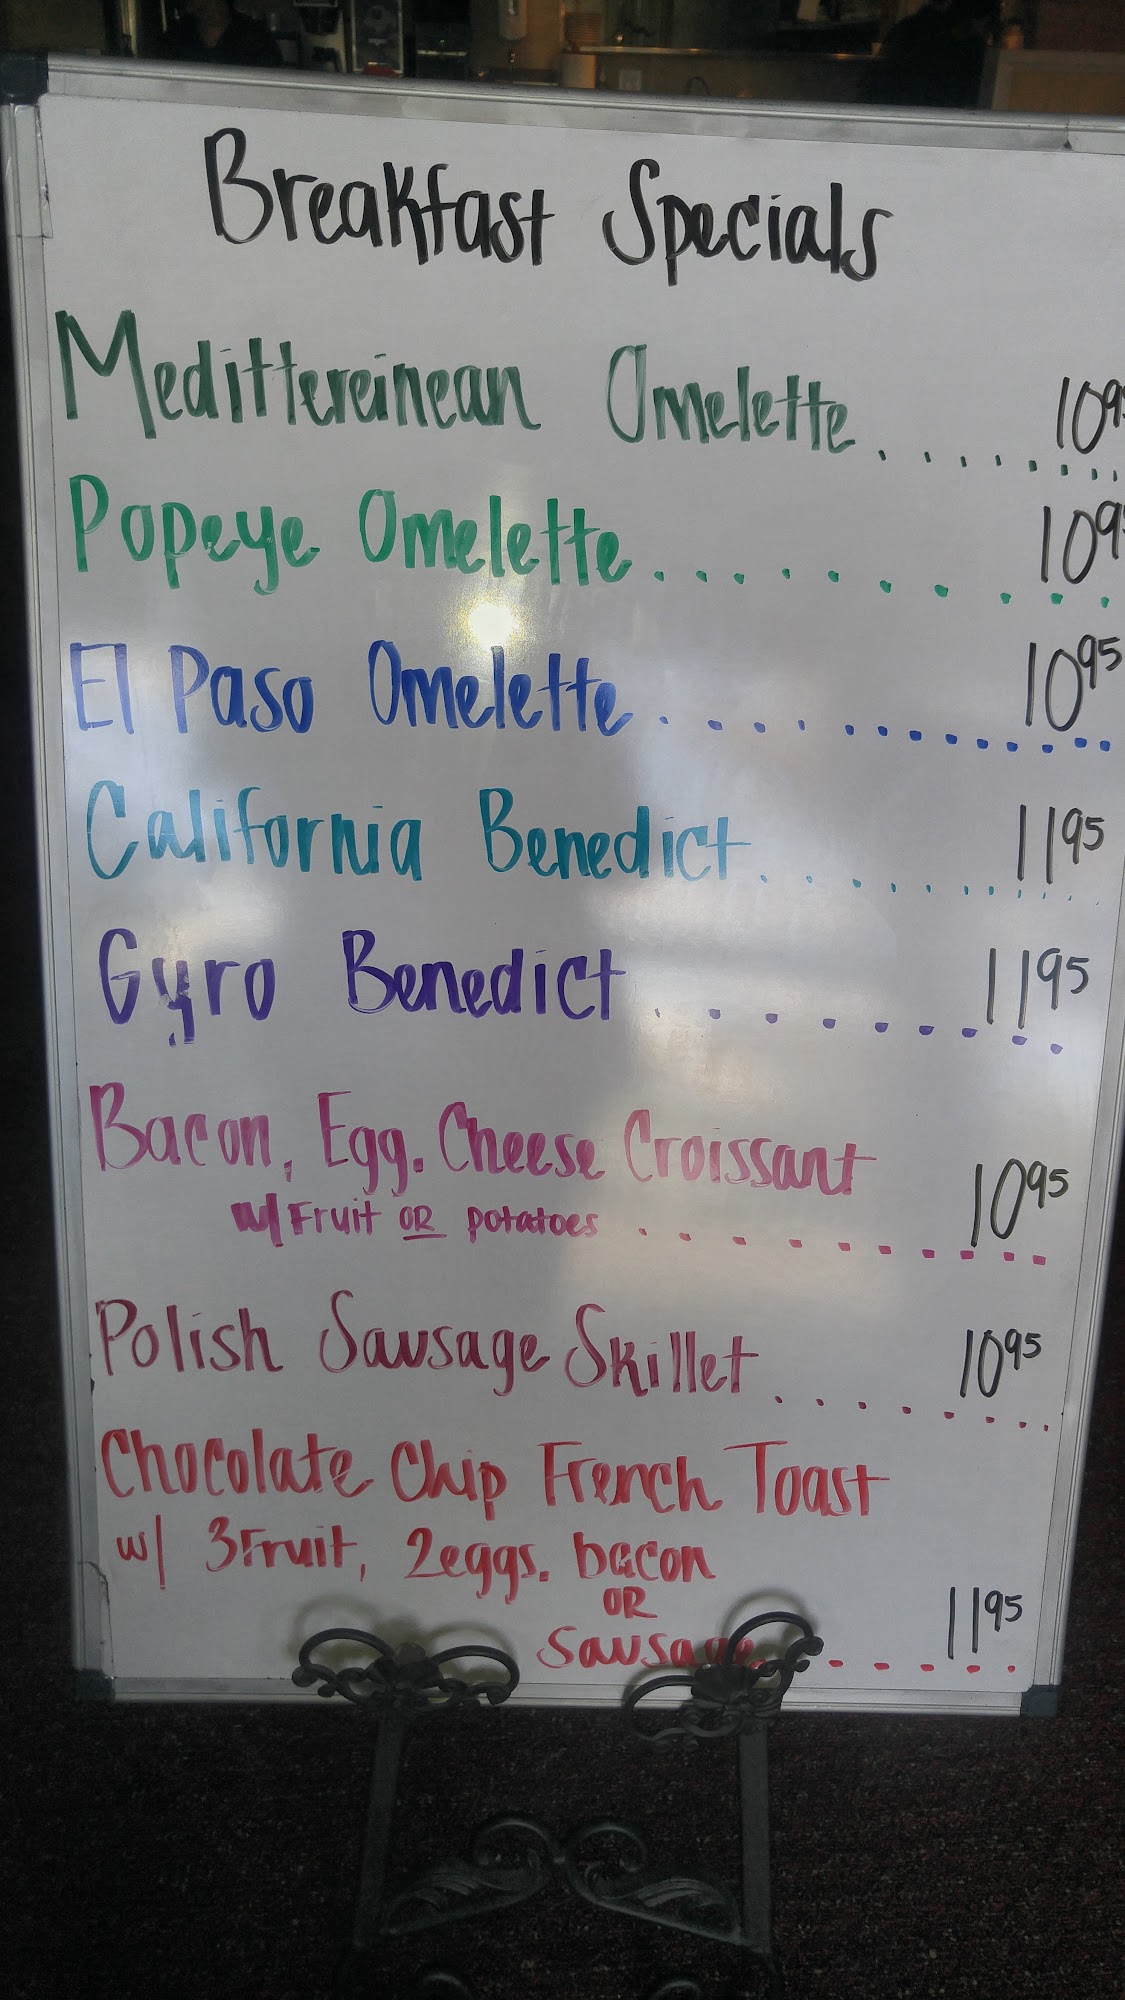 Breakfast Specials
Medittereinean Omelette ......... 10 95
Popeye Omelette .......... 10 9
El Paso Omelette ............. 10 95
California Benedict ............ 11 95
Gyro Benedict ......... 11 95
Bacon, Egg. Cheese Croissant
w/ Fruit OR potatoes ......... 10 95
Polish Sausage Skillet ........ 10 95
Chocolate Chip French Toast
w/ 3 Fruit, 2 eggs. bacon
OR
Sausage ...... 11 95